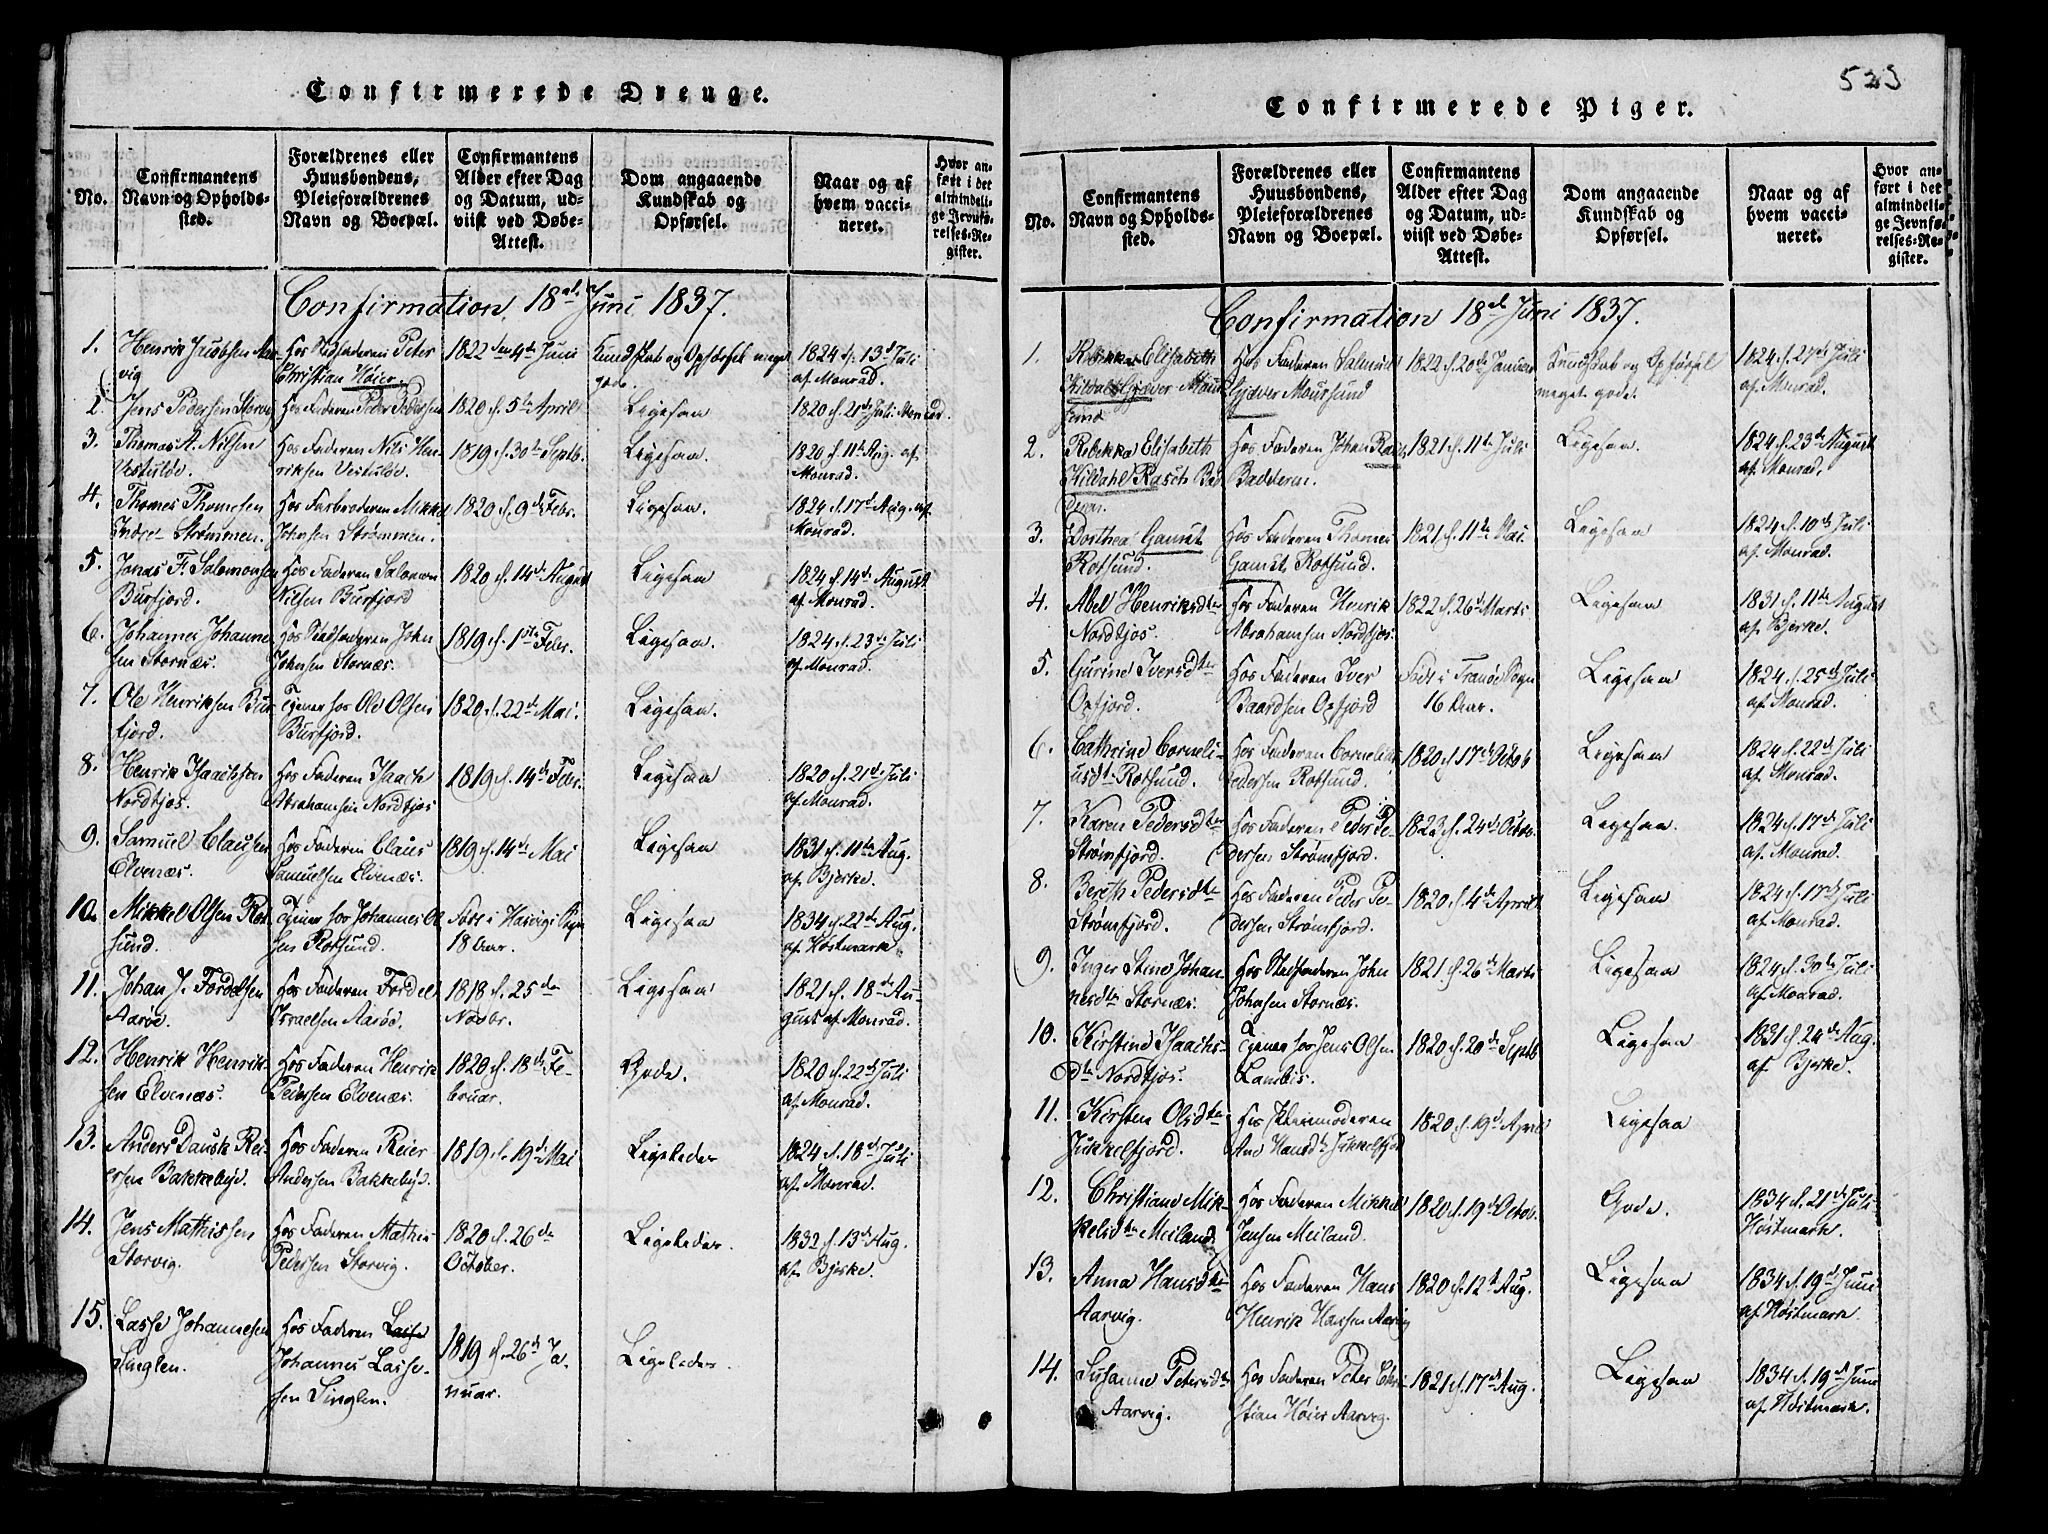 Confirmerede Drenge.
No.
Confirmantens Navn og Opholds-sted.
Forældrenes eller Huusbondens, Pleieforældrenes Navn og Boepæl.
Confirmantens Alder efter Dag og Datum, ud-viist ved Døbe-Attest.
Dom angaaende Kundskab og Opførsel.
Naar og af hvem vacci-neret.
Hvor an-ført i det almindeli-ge Jevnfø-relses-Re-gister.
Confirmation 18de Juni 1837.
1. Henrik Jacobsen Aar-vig
Hos Stedfaderen Peter Christian Høier.
1822 den 4de Juni
Kundskab og Opførsel meget gode.
1824 d. 13d Juli af Monrad.
2. Jens Pedersen Storvig
Hos Faderen Peder Pedersen
1820 d. 5te April
Ligesaa
1820 d. 21d Juli Monrad.
3. Thomas A. Nilsen
Hos Faderen Nils Hen-riksen
1819 d. 30te Septb.
Ligesaa.
1820 d. 11te Aug. af Monrad.
4. Thomes Thomesen Indre Strømmen.
Hos Farbroderen Mikkel Johnsen Strømmen.
1820 d. 9de Febr.
Ligesaa.
1824 d. 17d Aug. af Monrad.
5. Jonas F. Salomonsen Burfjord.
Hos Faderen Salomon Nilsen Burfjord
1820 d. 14de August
Ligesaa
1824 d. 14de August af Monrad.
6. Johannes Johanne-sen Stornæs.
Hos Stedfaderen John Johnsen Stornæs.
1819 d. 1ste Febr.
Ligesaa.
1824 d. 23de Juli af Monrad.
7. Ole Henriksen Bur-fjord.
Tjener hos Ole Olsen Burfjord.
1820 d. 22de Mai.
Ligesaa.
8. Henrik Isaachsen Nordtjos.
Hos Faderen Isaach Abrahamsen Nordtjos
1819 d. 14de Febr.
Ligesaa
1820 d. 21de Juli af Monrad.
9. Samuel Clausen Elvenæs.
Hos Faderen Claus Samuelsen Elvenæs.
1819 d. 14de Mai
Ligesaa
1831 d. 11te Aug. af Bjerke.
10. Mikkel Olsen Rot-sund.
Tjener hos Johannes Ol-sen Rotsund.
Født i Hasvigs Sogn 18 Aar.
Ligesaa
1834 d. 22de Aug. af Høstmark.
11. Johan J. Fordelsen Aarøe.
Hos Faderen Fordel Israelsen Aarøe.
1818 d. 25de Novbr.
Ligesaa
1821 d. 18de Au-gust af Monrad.
12. Henrik Henrik-sen Elvenæs.
Hos Faderen Henrik Pedersen Elvenæs.
1820 d. 18de Fe-bruar.
Gode.
1820 d. 22de Juli af Monrad.
13. Anders Dansk Rei-ersen Bakkebye.
Hos Faderen Reier Andersen Bakkebye.
1819 d. 19de Mai
Ligeledes
1824 d. 18de Juli af Monrad.
14. Jens Mathissen Storvig.
Hos Faderen Mathis Pedersen Storvig.
1820 d. 26de October.
Ligeledes.
1832 d. 13de Aug. af Bjerke.
15. Lasse Johannesen Singlen.
Hos Faderen Lasse Johannes Lasse-sen Singlen.
1819 d. 26de Ja-nuar.
Ligeledes.
523
Confirmerede Piger.
No.
Confirmantens Navn og Opholds-sted.
Forældrenes eller Huusbondens, Pleieforældrenes Navn og Boepæl.
Confirmantens Alder efter Dag og Datum, ud-viist ved Døbe-Attest.
Dom angaaende Kundskab og Opførsel.
Naar og af hvem vacci-neret.
Hvor an-ført i det almindeli-ge Jevnfø-relses-Re-gister.
Confirmation 18de Juni 1837.
1. Rebekka Elisabeth Kildahl Gjæver Maur-sund
Hos Faderen Gjæver Maursund
1822 d. 20de Januar
Kundskab og Opførsel meget gode.
1824 d. 27de Juli af Monrad.
2. Rebekka Elisabeth Kildahl Rasch Bad-deren.
Hos Faderen Johan Rasch Badderen.
1821 d. 11te Juli
Ligesaa.
1824 d. 23de August af Monrad.
3. Dorthea Gamst Rotsund.
Hos Faderen Thomas Gamst Rotsund.
1821 d. 11te Mai
Ligesaa
1824 d. 10de Juli af Monrad.
4. Abel Henriksdter Nordtjos.
Hos Faderen Henrik Abrahamsen Nordtjos.
1822 d. 26de Marts
Ligesaa
1831 d. 11te August af Bjerke.
5. Gurine Iversdter Oxfjord.
Hos Faderen Iver Baardsen Oxfjord
Født i Tranøe Sogn 16 Aar.
Ligesaa
1824 d. 25de Juli af Monrad.
6. Cathrine Corneli-usdtr Rotsund.
Hos Faderen Cornelius Pedersen Rotsund.
1820 d. 17de Octob
Ligesaa
1824 d. 22de Juli af Monrad.
7. Karen Pedersdter Strømfjord.
Hos Faderen Peder Pe-dersen Strømfjord.
1823 d. 24de Octob.
Ligesaa.
1824 d. 17de Juli af Monrad.
8. Bereth Pedersdter Strømfjord.
Hos Faderen Peder Pe-dersen Strømsfjord.
1820 d. 4de April
Ligesaa
1824 d. 17de Juli af Monrad.
9. Inger Stine Johan-nesdter Stornæs.
Hos Stedfaderen John Johnsen Stornæs.
1821 d. 26de Marts
Ligesaa
1824 d. 30te Juli af Monrad.
10. Kirstine Isaachs-dtr Nordtjos.
Tjener hos Jens Olsen
1820 d. 20de Septb
Ligesaa
1831 d. 24de Aug. af Bjerke.
11. Kirsten Olsdter Jøkkelfjord.
Hos Pleiemoderen Ane Hansdtr Jøkkelfjord
1820 d. 19de April
Ligesaa
12. Christiane Mik-kelsdter Meiland.
Hos Faderen Mikkel Jensen Meiland.
1820 d. 19de Octob.
Gode.
1834 d. 21de Juli Høstmark.
13. Anna Hansdter Aarvig.
Hos Faderen Hans Henrik Hansen Aarvig
1820 d. 12te Aug.
Ligesaa
1834 d. 19de Juni af Høstmark.
14. Susanne Petersdtr Aarvig.
Hos Faderen Peter Chri-stian Høier Aarvig.
1821 d. 17de Aug.
Ligesaa
1834 d. 19de Juni af Høstmark.